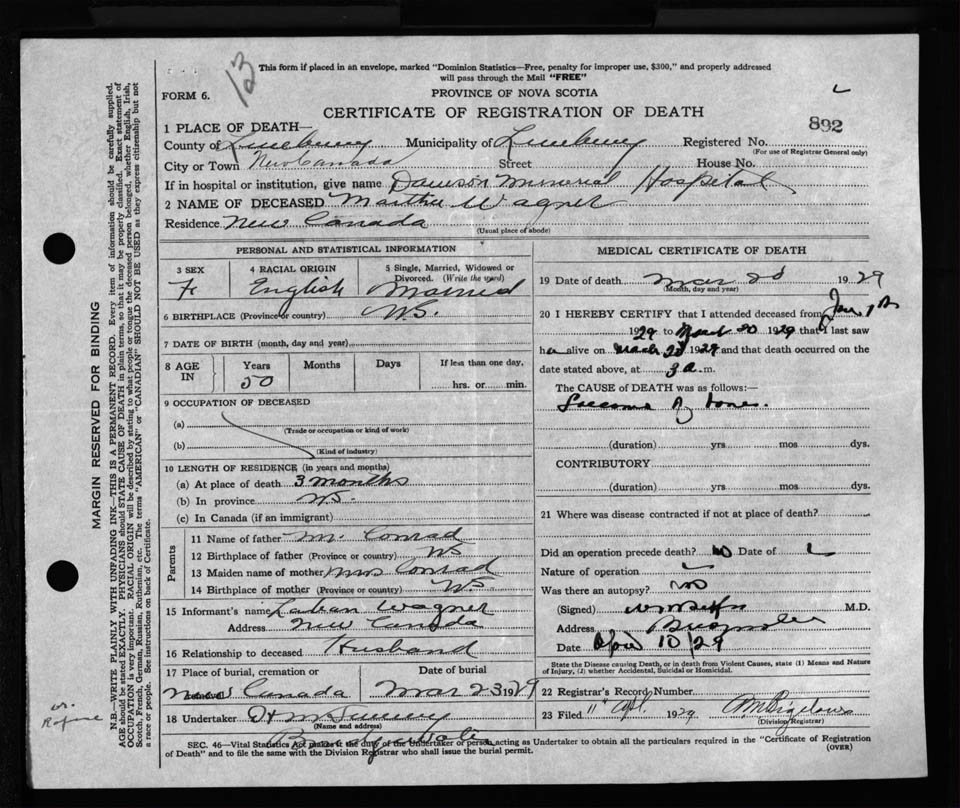 13
This form if placed in an envelope, marked "Dominion Statistics—Free, penalty for improper use, $300," and properly addressed
will pass through the Mail "FREE"
FORM 6.
PROVINCE OF NOVA SCOTIA
CERTIFICATE OF REGISTRATION OF DEATH
892
1 PLACE OF DEATH—
County of Lunenburg Municipality of Lunenburg Registered No.
(For use of Registrar General only)
City or Town New Canada Street House No.
If in hospital or institution, give name Dawson Memorial Hospital
2 NAME OF DECEASED Martha Wagner
Residence New Canada
(Usual place of abode)
PERSONAL AND STATISTICAL INFORMATION
3 SEX 4 RACIAL ORIGIN 5 Single, Married, Widowed or
Divorced. (Write the word)
Fe English Married
6 BIRTHPLACE (Province or country) N.S.
7 DATE OF BIRTH (month, day and year)
8 AGE IN Years Months Days If less than one day,
50 hrs. or min.
9 OCCUPATION OF DECEASED
(a)
(Trade or occupation or kind of work)
(b)
(Kind of industry)
10 LENGTH OF RESIDENCE (in years and months)
(a) At place of death 3 months
(b) In province N.S.
(c) In Canada (if an immigrant)
Parents
11 Name of father Mr. Conrad
12 Birthplace of father (Province or country) NS
13 Maiden name of mother Mrs Conrad
14 Birthplace of mother (Province or country) N.S.
15 Informant's name Laban Wagner
Address New Canada
16 Relationship to deceased Husband
17 Place of burial, cremation or removal Date of burial
New Canada Mar 23 1929
18 Undertaker
(Name and address)
MEDICAL CERTIFICATE OF DEATH
19 Date of death Mar 20 1929
(Month, day and year)
20 I HEREBY CERTIFY that I attended deceased from Jan.
1929 to March 20 1929 that I last saw
her alive on March 1929 and that death occurred on the
date stated above, at 3 a.m.
The CAUSE OF DEATH was as follows:—
(duration) yrs mos dys.
CONTRIBUTORY
(duration) yrs mos dys.
21 Where was disease contracted if not at place of death?
Did an operation precede death? No Date of
Nature of operation
Was there an autopsy? No
(Signed) M.D.
Address
Date April 10/29
State the Disease causing Death, or in death from Violent Causes, state (1) Means and Nature
of Injury, (2) whether Accidental, Suicidal or Homicidal.
22 Registrar's Record Number
23 Filed 11" Apl. 1929
(Division Registrar)
SEC. 46—Vital Statistics Act makes it the duty of the Undertaker or person acting as Undertaker to obtain all the particulars required in the "Certificate of Registration
of Death" and to file the same with the Division Registrar who shall issue the burial permit. (OVER)
MARGIN RESERVED FOR BINDING
N.B.—WRITE PLAINLY WITH UNFADING INK—THIS IS A PERMANENT RECORD. Every item of information should be carefully supplied.
AGE should be stated EXACTLY. PHYSICIANS should STATE CAUSE OF DEATH in plain terms, so that it may be properly classified. Exact statement of
OCCUPATION is very important. RACIAL ORIGIN will be described by stating to what people or tongue the deceased person belonged, whether English, Irish,
Scotch, French, German, Russian, Ruthenian, etc. The terms "AMERICAN" or "CANADIAN" SHOULD NOT BE USED as they express citizenship but not
a race or people. See instructions on back of Certificate.